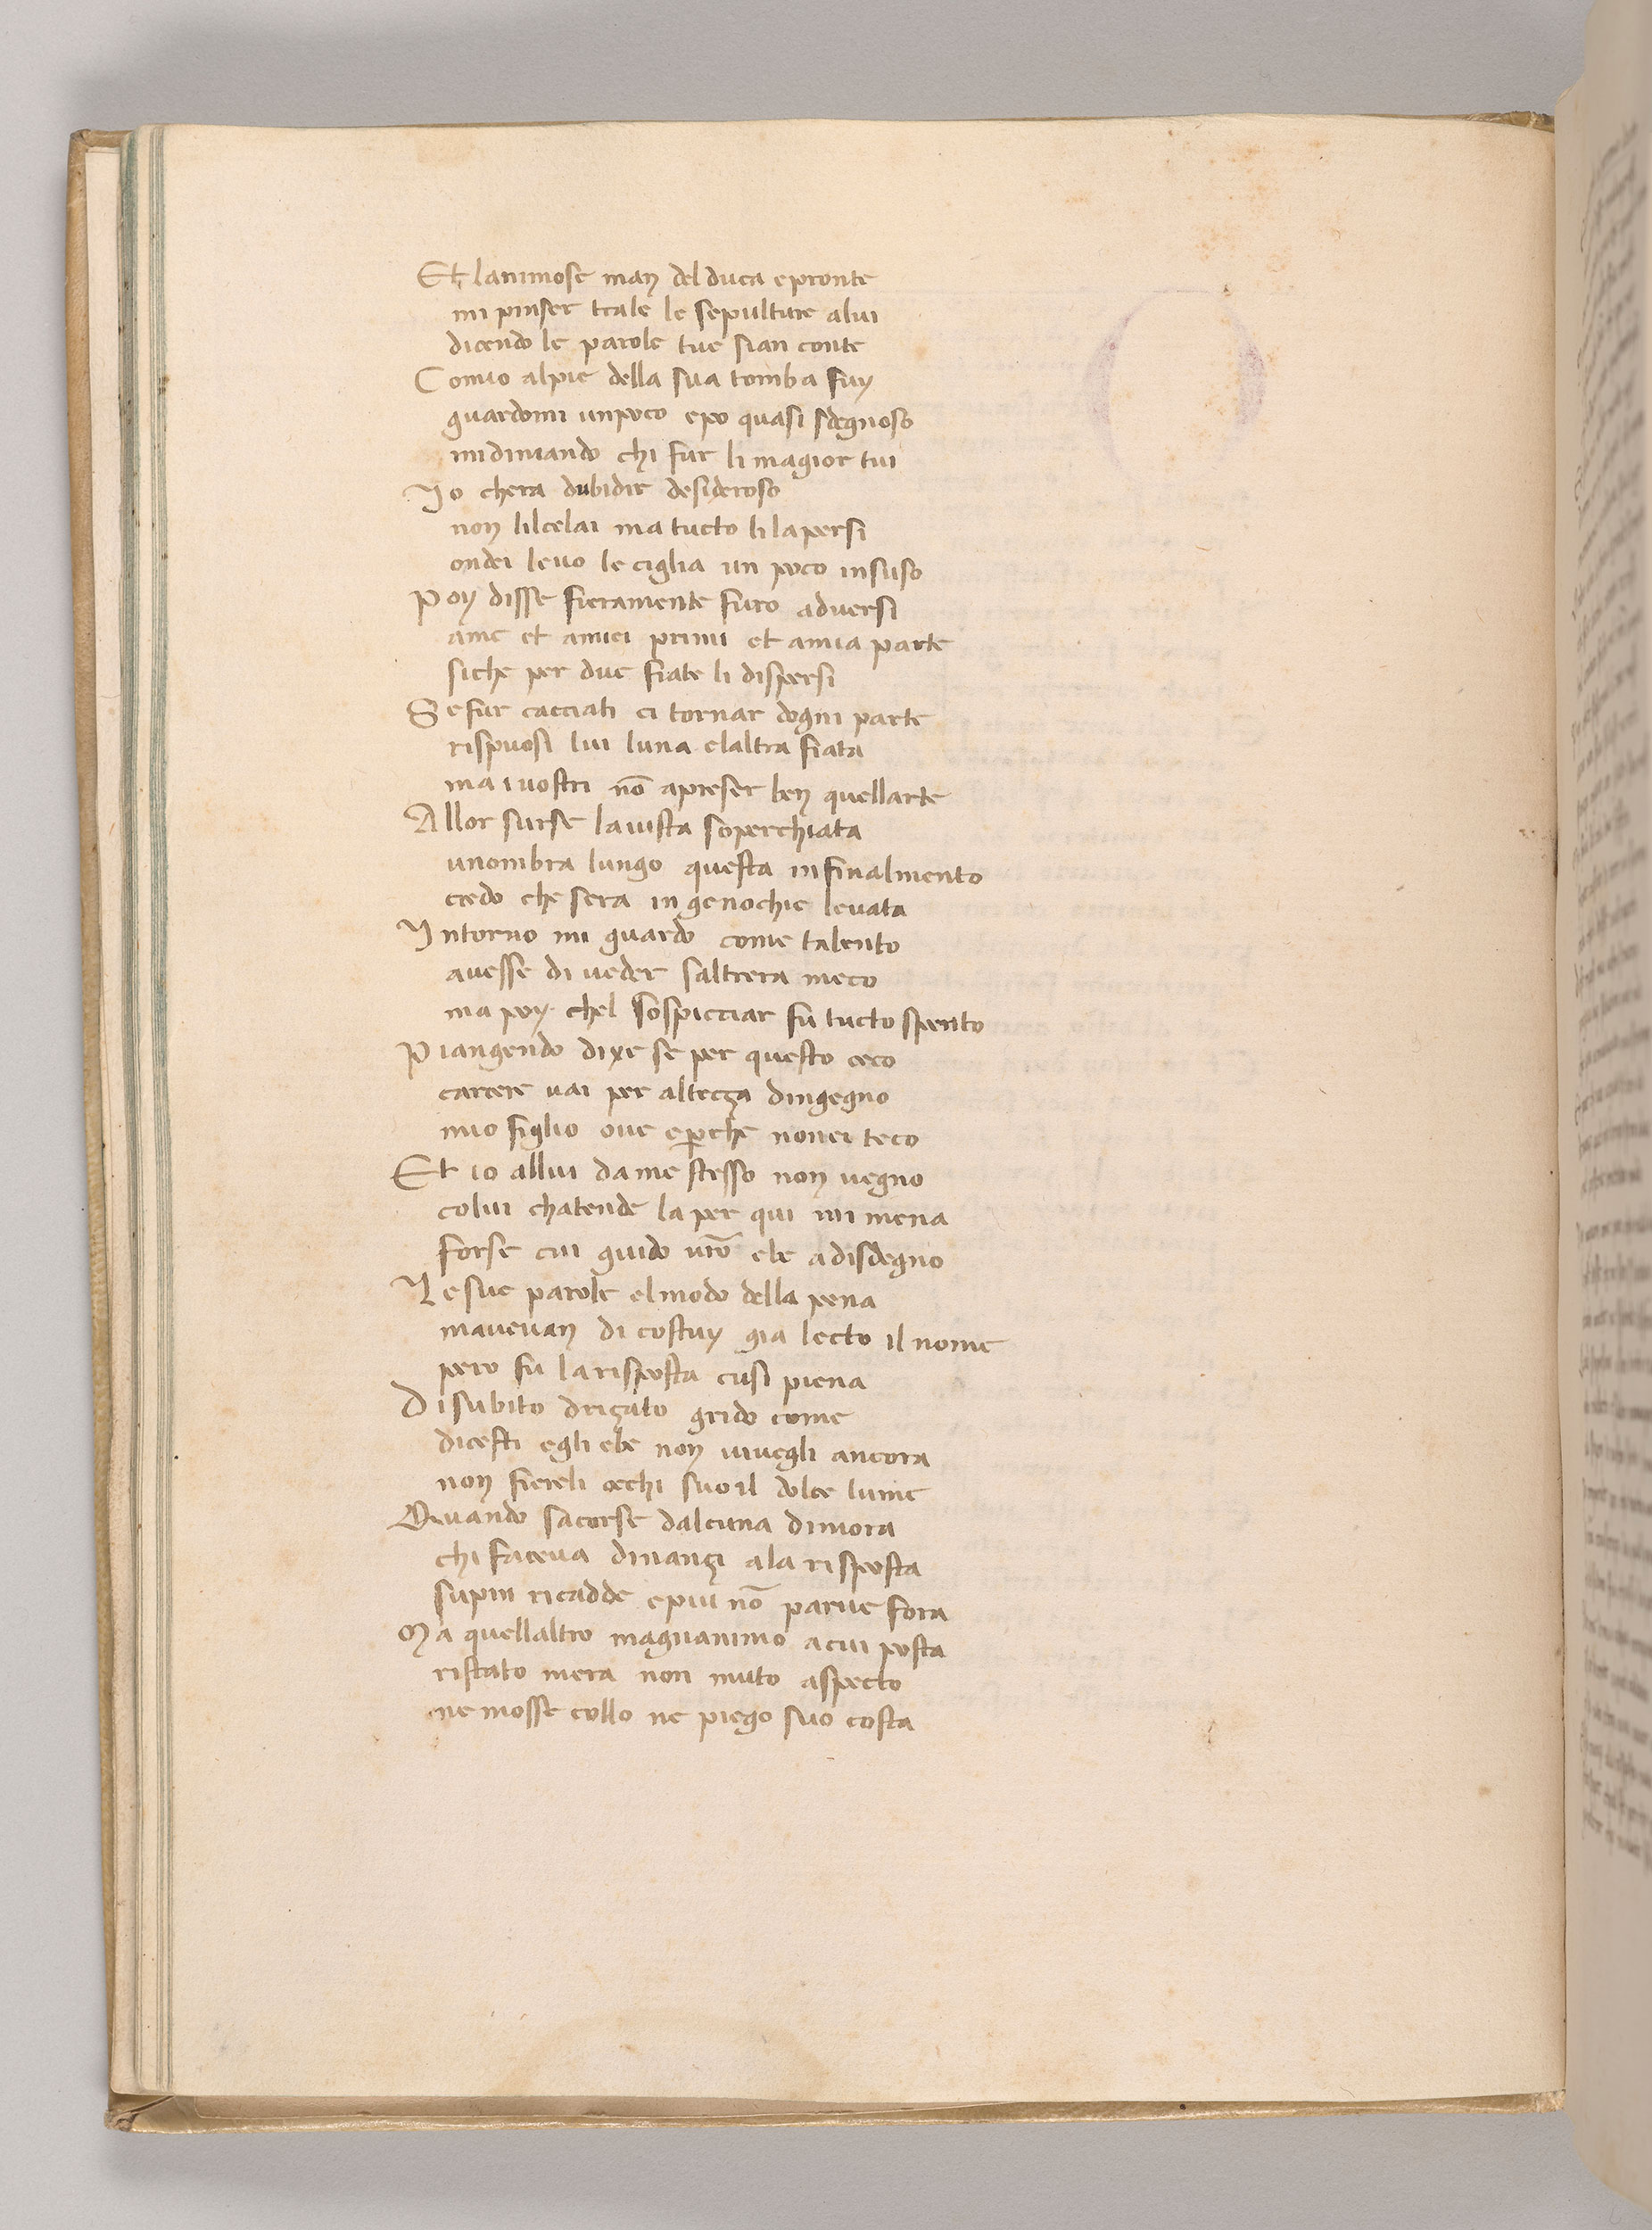 Et lanimose man del duca epronte
mi pinser trale le sepulture alui
dicendo le parole tue sian conte
Comio alpie della sua tomba fuy
guardomi unpoco epo quasi sdegnoso
midimando chi fur li magior tui
Io chera dubidir desideroso
non lilcelai ma tucto li lapersi
ondei levo le ciglia un poco insuso
Poy disse fieramente furo adversi
ame et amiei primi et amia parte
siche per due fiate li dispersi
Se fur cacciati ci tornar dogni parte
rispuosi lui luna elaltra fiata
ma i vostri nō apreser ben quellarte
Allor surse lavista soperchiata
unombra lungo questa infinalmento
credo che sera in genochie levata
Intorno mi guardo come talento
avesse di veder saltrera meco
ma poy chel sospicciar fu tucto spento
Piangendo dixe se per questo ceco
carcere vai per altecza dingegno
mio figlio ove eperche nonei teco
Et io allui da me stesso non vegno
colui chatende la per qui mi mena
forse cui guido vrō ebe adisdegno
Le sue parole elmodo della pena
mavevan di costuy gia lecto il nome
pero fu larisposta cusi piena
Disubito driçato grido come
dicesti egli ebe non vivegli ancora
non fiereli ochi suoil dolce lume
Quando sacorse dalcuna dimora
chi faceva dinançi ala risposta
supin ricadde epiu nō parve fora
Ma quellaltro magnanimo acui posta
ristato mera non muto aspecto
ne mosse collo ne piego suo costa